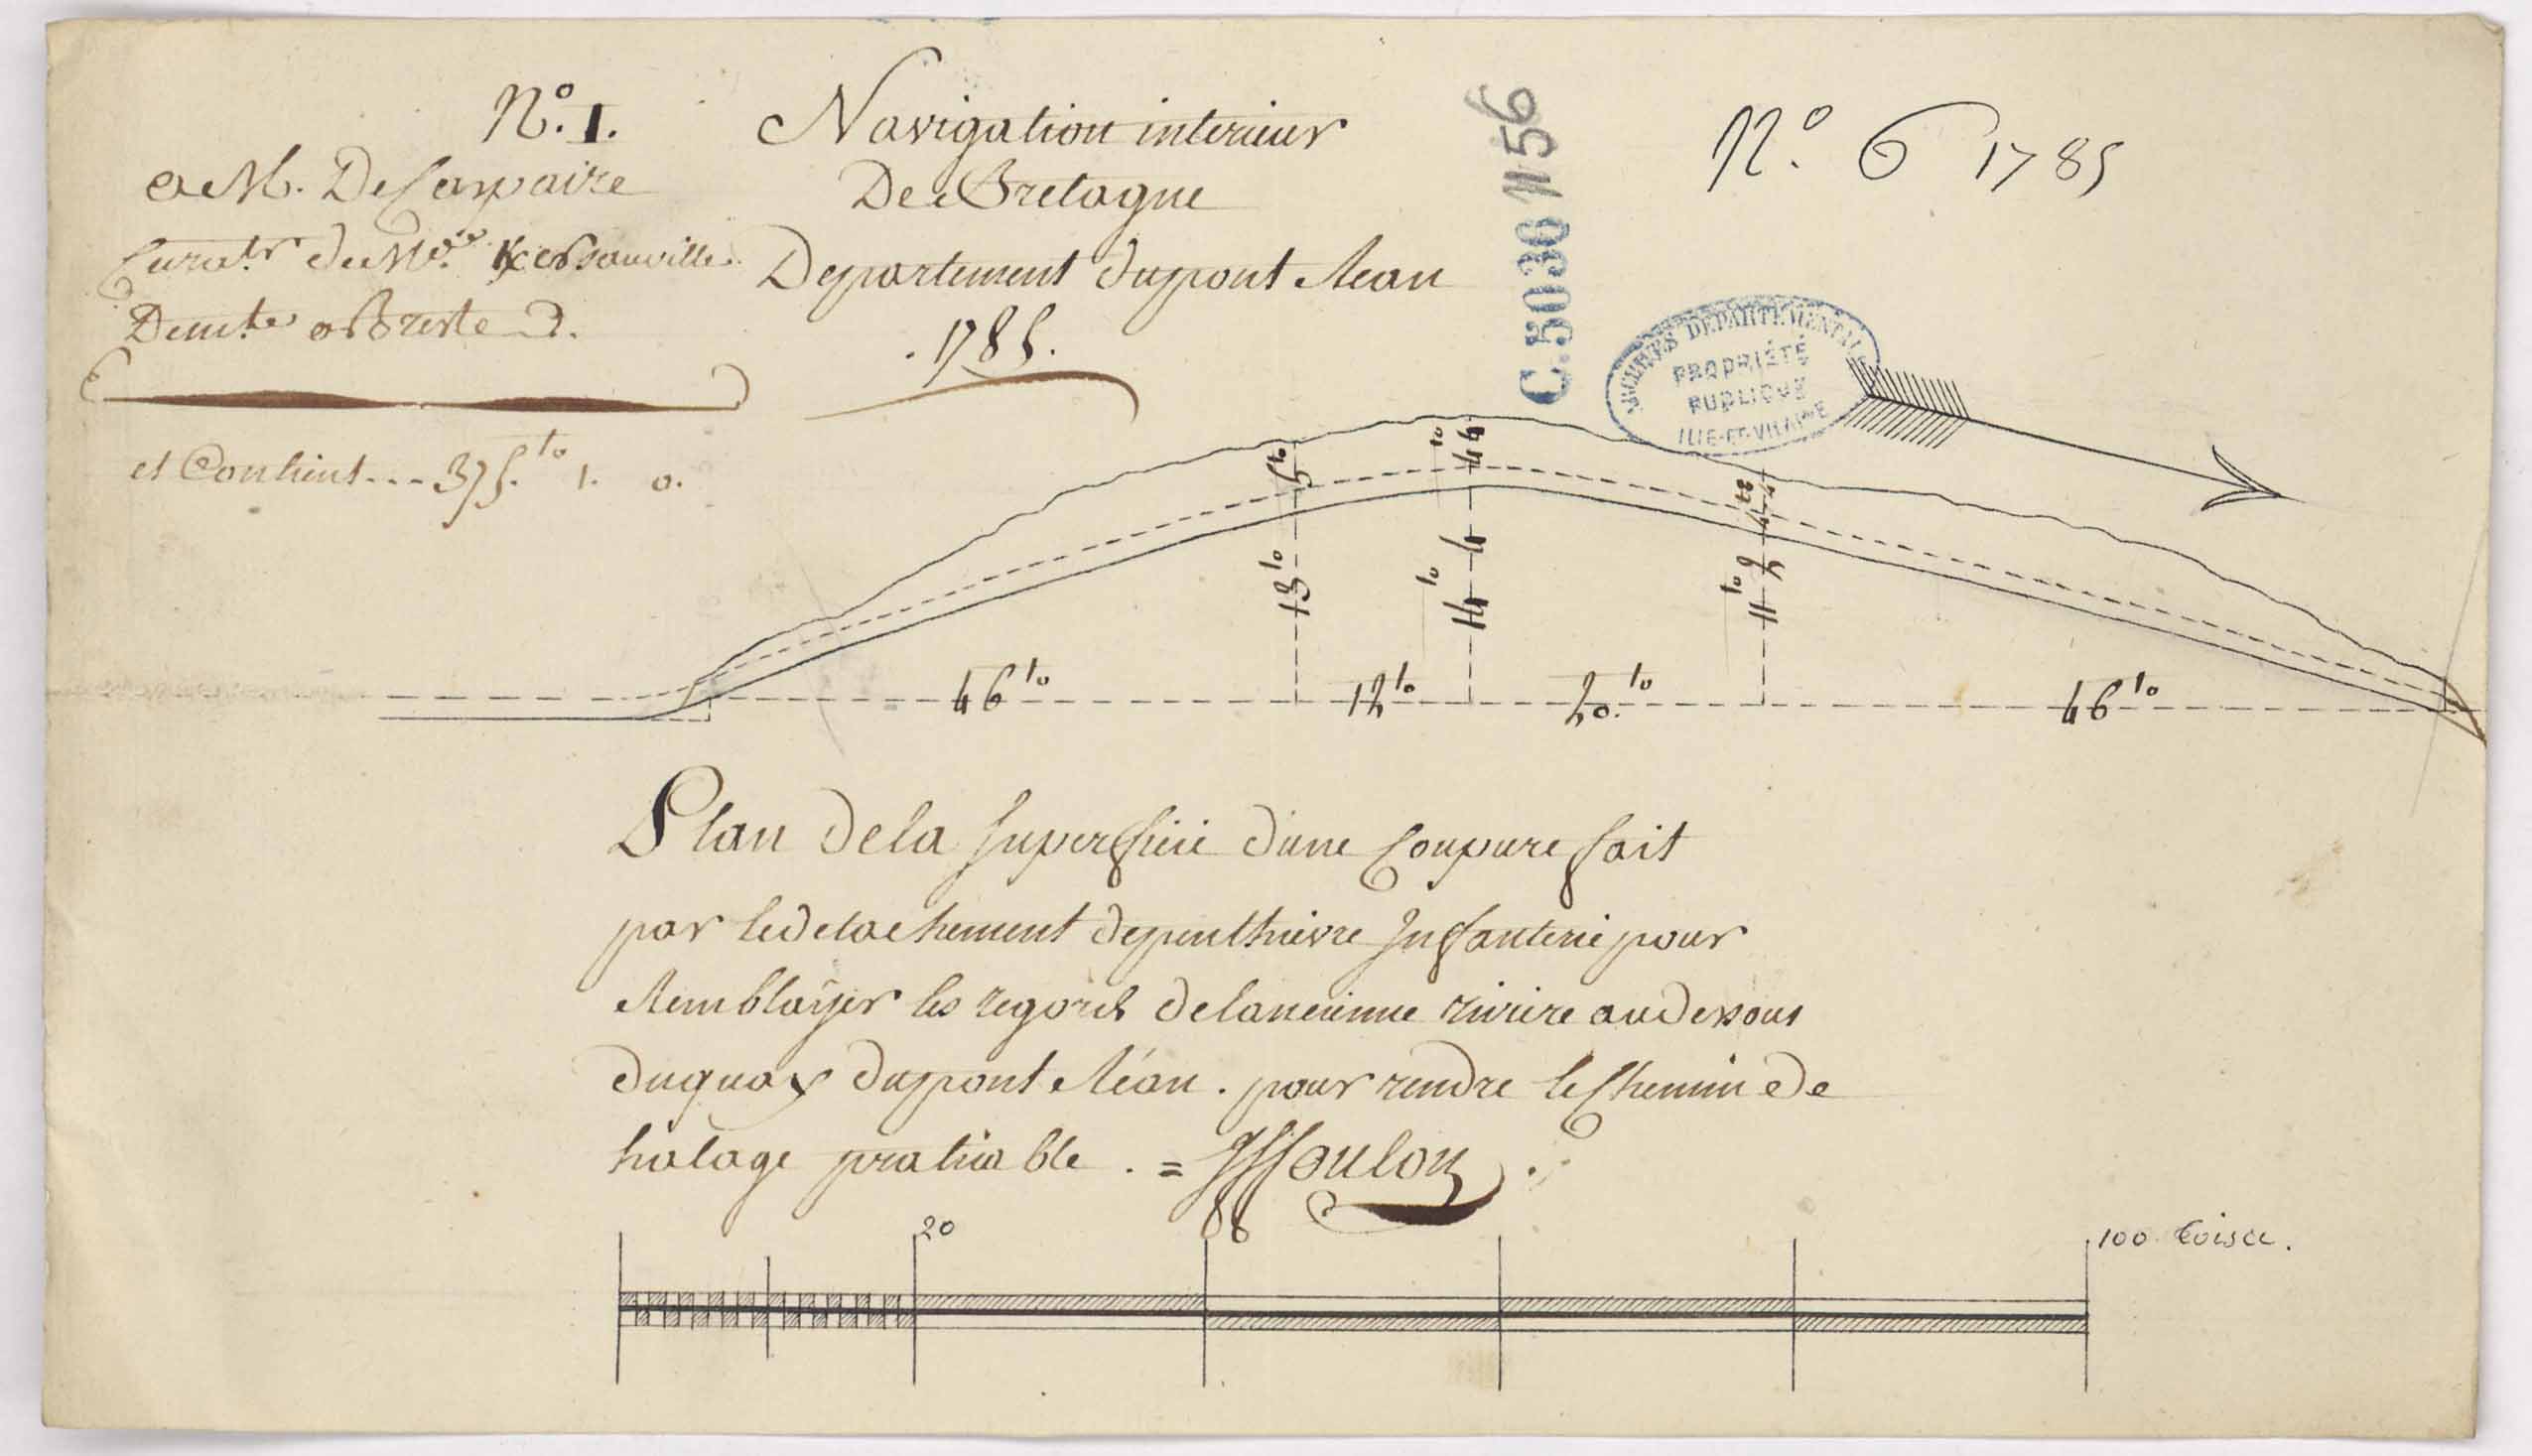 N.º 1.
a M. De
Curat.r de M.r
Dem.te a Breste
et Contient... 375.to 1. 0.
Navigation interieur
De Bretagne
Departement dupont Rean
. 1785.
C.5038 1156
N.º 6 1785
ARCHIVES DÉPARTEMENTALES
PROPRIÉTÉ
PUBLIQUE
ILLE-ET-VILAINE
5to
to 4 4
13to
14to 4
11to
46to
12to
20.to
46to
Plan dela superficie dune Coupure fait
par ledetachement depenthievre Infanterie pour
Remblayer les regords delancienne riviere audessous
duquay dupont Réan . pour rendre leChemin de
halage praticable . = Foulon .
20
100 toise.